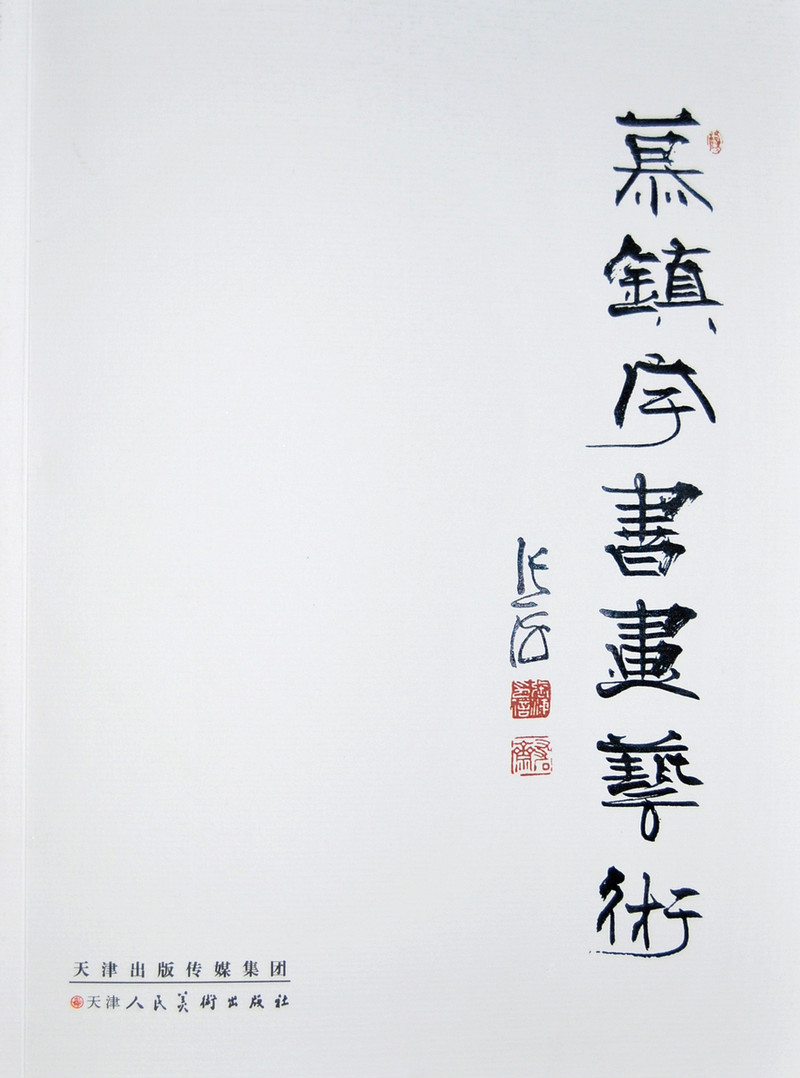 慕鎮宇書畫藝術
张海
天津出版传媒集团
天津人民美術出版社